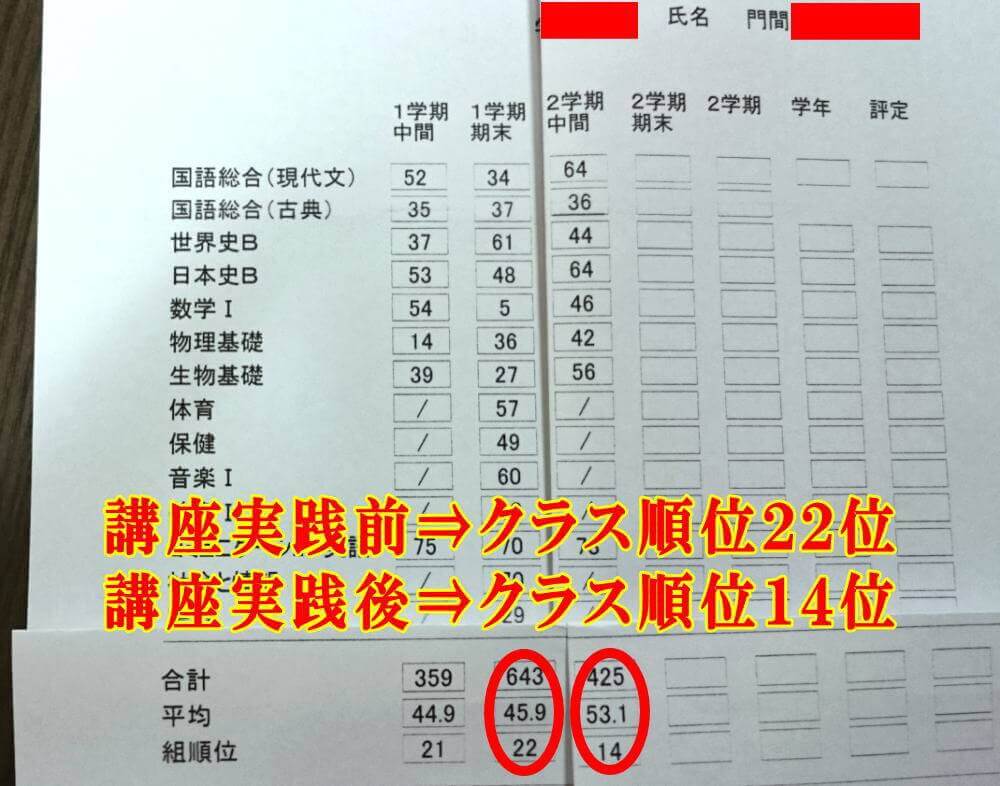 氏名 門間
1学期中間 1学期期末 2学期中間 2学期期末 2学期 学年 評定
国語総合(現代文) 52 34 64
国語総合(古典) 35 37 36
世界史B 37 61 44
日本史B 53 48 64
数学Ⅰ 54 5 46
物理基礎 14 36 42
生物基礎 39 27 56
体育 / 57 /
保健 / 49 /
音楽Ⅰ / 60 /
講座実践前⇒クラス順位22位
75 70
講座実践後⇒クラス順位14位
29
合計 359 643 425
平均 44.9 45.9 53.1
組順位 21 22 14